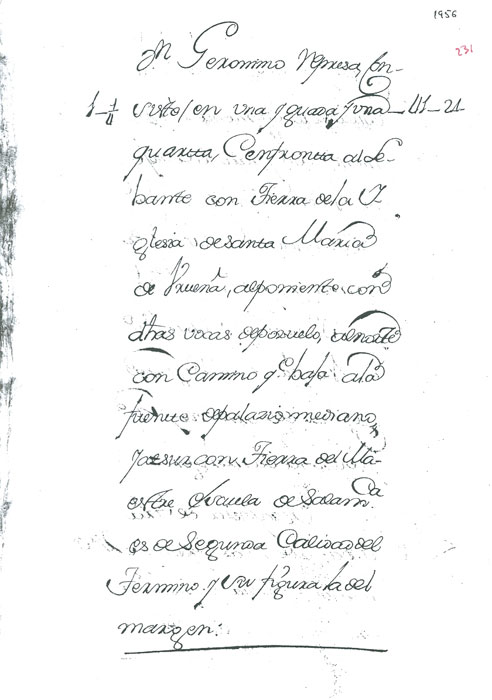 1956
231
Dn Geronimo Represa, Con-
siste, en una yguada, y una
quartta, Confrontta al Le-
bante con Tierra de la Y
glesia de Santa Maria
de Urueña, al poniente, con
dhas vocas de pozuelo, al norte
con Camino q.e baja a la
fuente de palazio mediano,
y al sur, con Tierra del Ma-
estre de Salam.ca
es de Segunda Calidad del
Termino y su figura la del
margen: